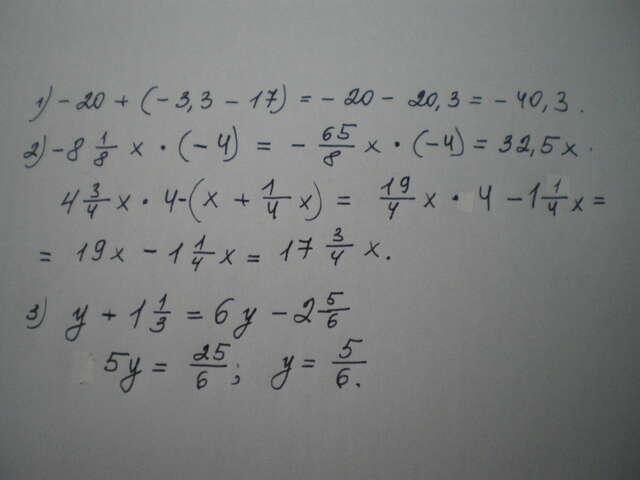 1) - 20 + (- 3,3 - 17) = - 20 - 20,3 = - 40,3.
2) - 8 1/8 x · (- 4) = - 65/8 x · (-4) = 32,5x.
4 3/4 x · 4 - (x + 1/4 x) = 19/4 x · 4 - 1 1/4 x =
= 19x - 1 1/4 x = 17 3/4 x.
3) y + 1 1/3 = 6y - 2 5/6
5y = 25/6; y = 5/6.